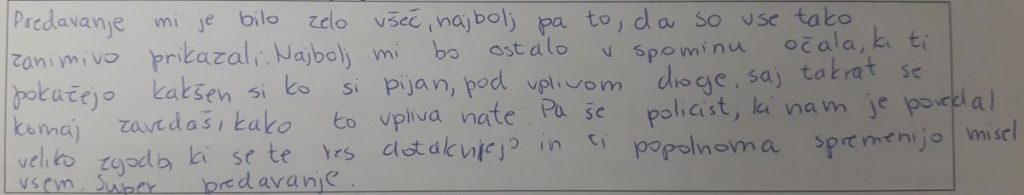 Predavanje mi je bilo zelo všeč, najbolj pa to, da so vse tako
zanimivo prikazali. Najbolj mi bo ostalo v spominu očala, ki ti
pokažejo kakšen si ko si pijan, pod vplivom droge, saj takrat se
komaj zavedaš, kako to vpliva nate. Pa še policist, ki nam je povedal
veliko zgodb, ki se te res dotaknejo in ti popolnoma spremenijo misel
vsem. Super predavanje.